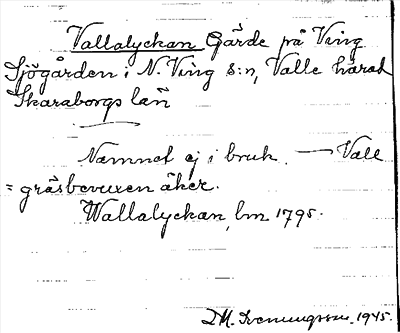 Vallalyckan Gärde på Ving
Sjögården i N. Ving s:n, Valle härad
Skaraborgs län
Namnet ej i bruk. — Vall
= gräsbevuxen åker.
Wallalyckan, lm 1795.
1945.